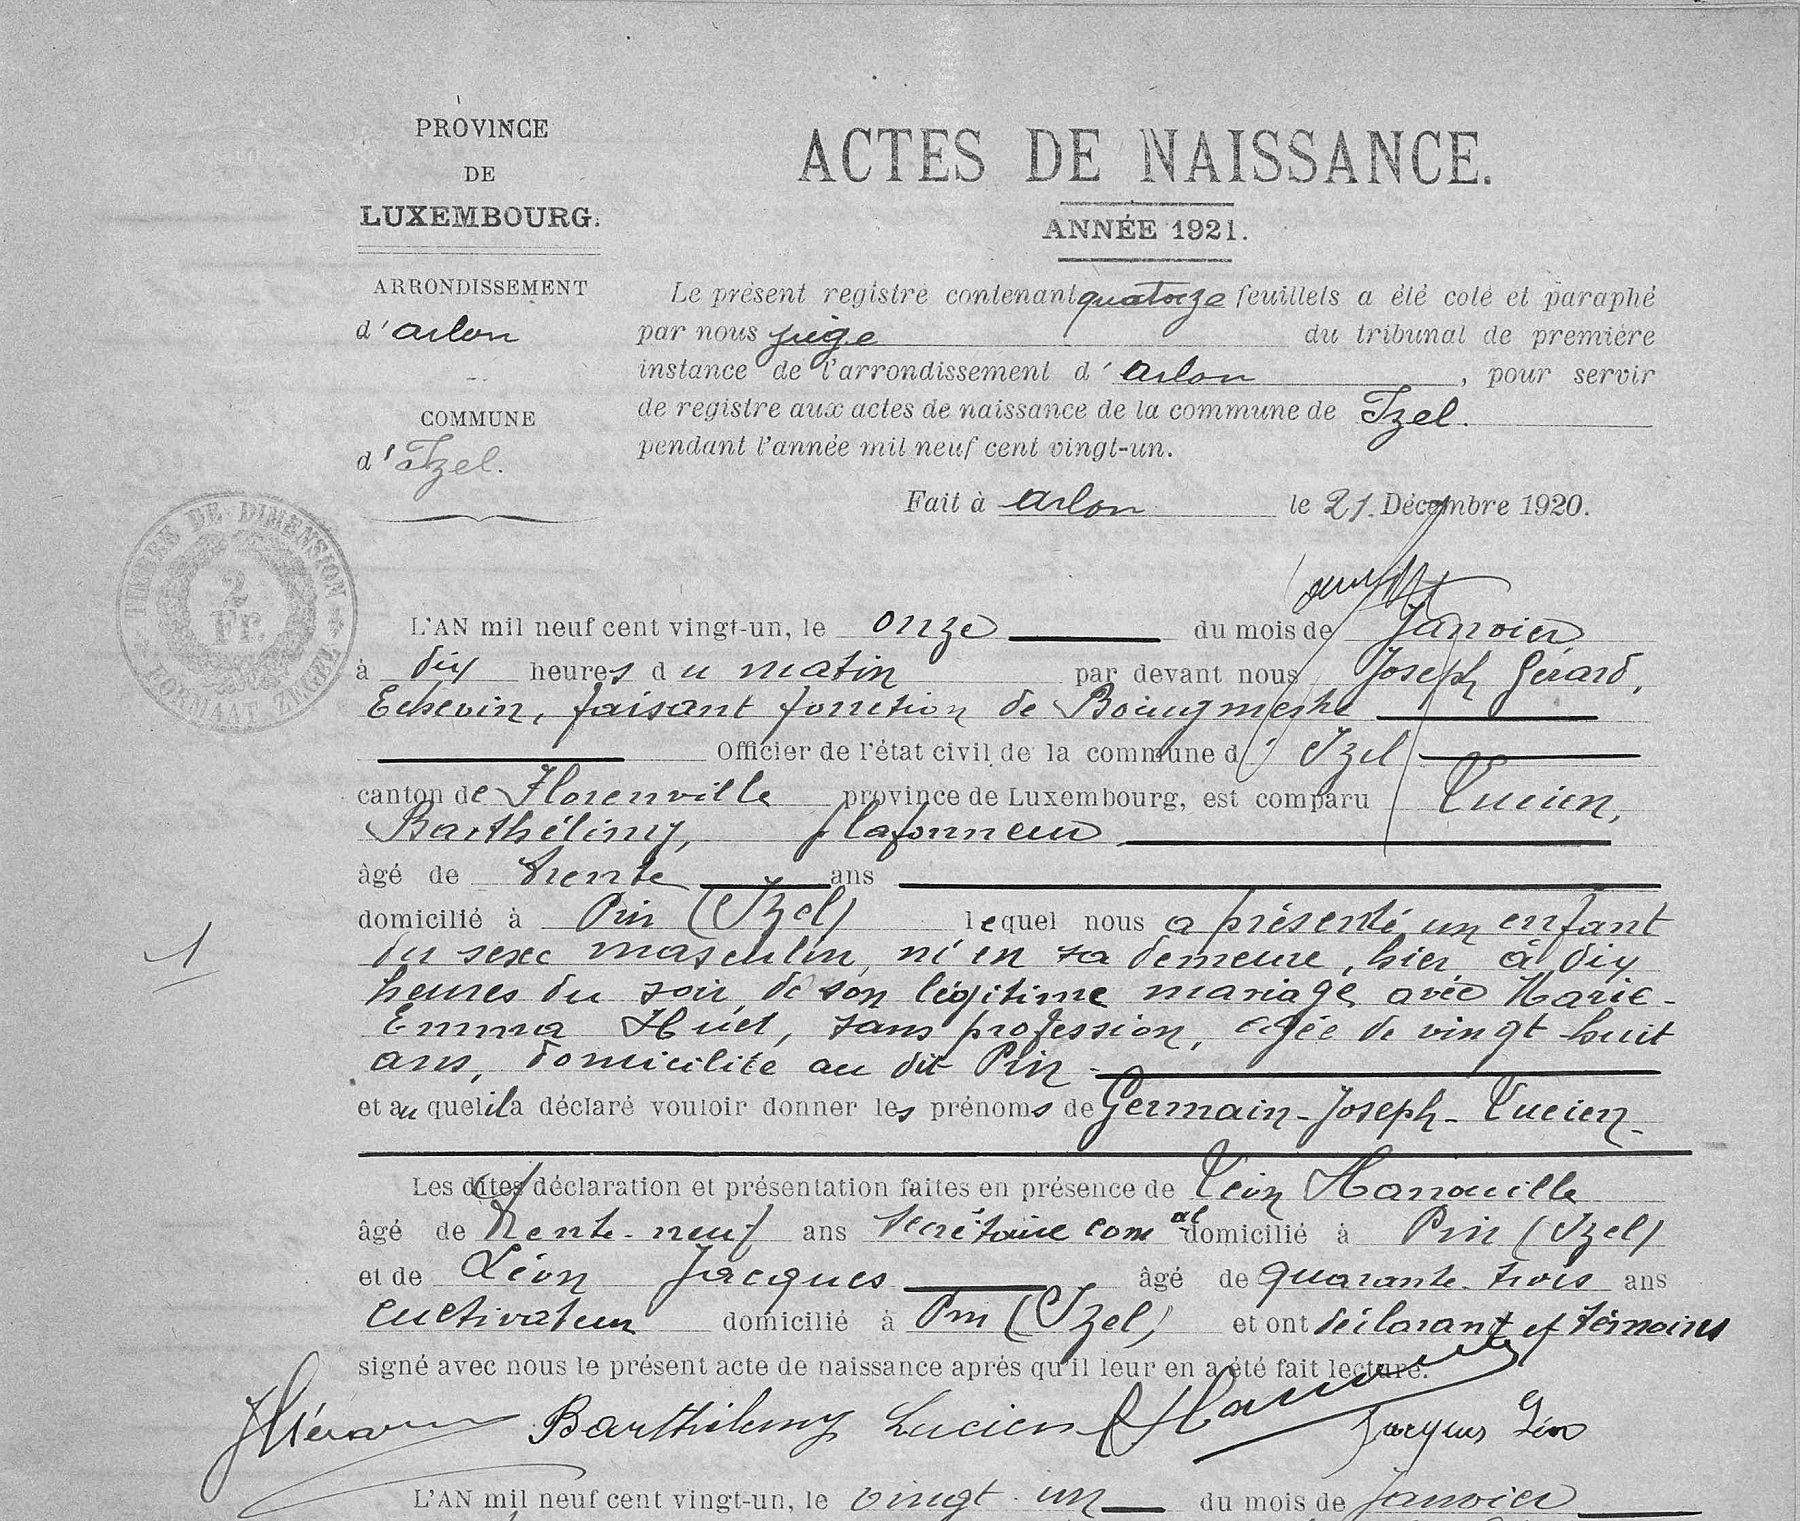 PROVINCE
DE
LUXEMBOURG.
ARRONDISSEMENT
d'Arlon
COMMUNE
d'Izel.
TIMBRE DE DIMENSION
2
Fr.
FORMAAT ZEGEL
ACTES DE NAISSANCE.
ANNÉE 1921.
Le présent registre contenant quatorze feuillets a été coté et paraphé
par nous juge du tribunal de première
instance de l'arrondissement d'Arlon, pour servir
de registre aux actes de naissance de la commune de Izel.
pendant l'année mil neuf cent vingt-un.
Fait à Arlon le 21. Décembre 1920.
L'AN mil neuf cent vingt-un, le onze du mois de Janvier
à dix heures du matin par devant nous Joseph Gérard,
Echevin, faisant fonction de Bourgmestre
Officier de l'état civil de la commune d'Izel
canton de Florenville province de Luxembourg, est comparu Lucien,
Barthélemy, plafonneur
âgé de trente ans
domicilié à Pin (Izel) lequel nous a présenté un enfant
du sexe masculin, né en sa demeure, hier, à dix
heures du soir, de son légitime mariage avec Marie-
Emma Huet, sans profession, agée de vingt huit
ans, domiciliée au dit Pin
et auquel il a déclaré vouloir donner les prénoms de Germain-Joseph-Lucien-
1
Les dites déclaration et présentation faites en présence de Léon Hanouille
âgé de trente-neuf ans secrétaire comal domicilié à Pin (Izel)
et de Léon Jacques âgé de quarante-trois ans
cultivateur domicilié à Pin (Izel) et ont déclarant et témoins
signé avec nous le présent acte de naissance après qu'il leur en a été fait lecture.
JGérard Barthélemy Lucien LHanouille Jacques Léon
L'AN mil neuf cent vingt-un, le vingt-un du mois de Janvier